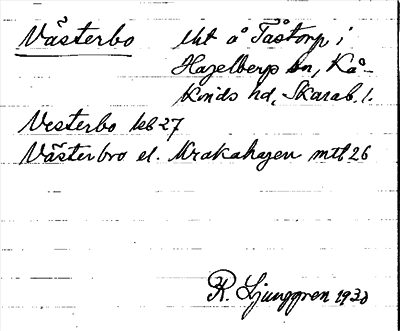 Västerbo lht å Tåstorp i
Hasselberp sn, Kå-
kinds hd, Skarab. l.
Vesterbo leb 27
Västerbro el. Krakahagen mtl 26
R. Ljunggren 1930